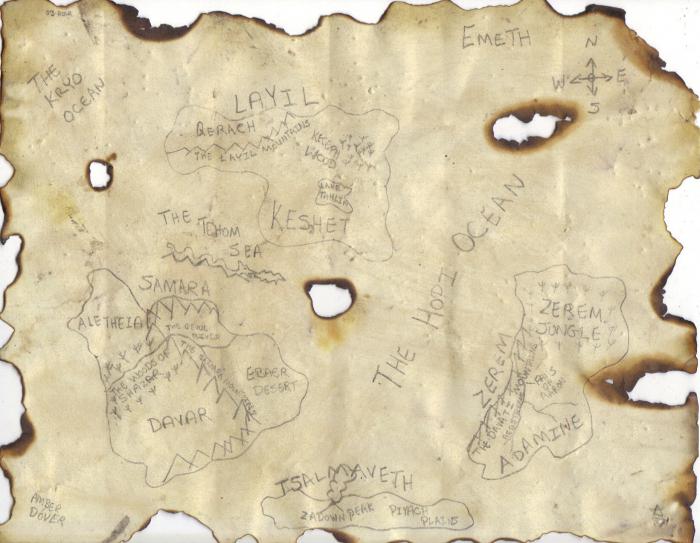 EMETH
N
W E
S
THE
KRYO
OCEAN
LAYIL
QERACH
THE LAYIL MOUNTAINS
WOOD
LAKE
TAHLIA
KESHET
THE TCHOM
SEA
THE HODI OCEAN
SAMARA
ALETHEIA
THE WOODS OF
SHAZAR
EBAER
DESERT
DAVAR
ZEREM
JUNGLE
ZEREM
ADAMINE
TSALMAVETH
ZADOWN PEAK
PIYACH
PLAINS
AMBER
DOVER